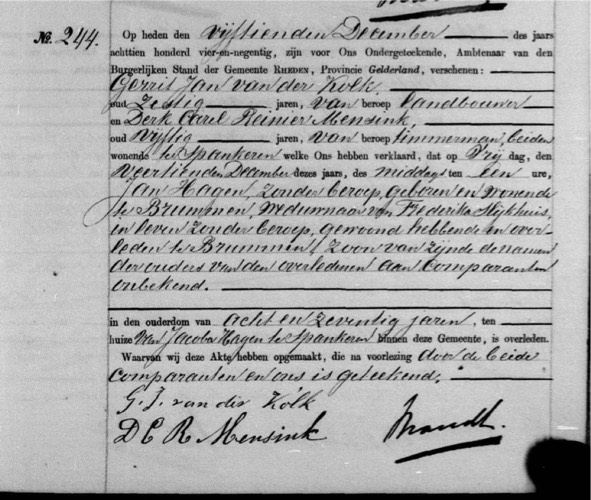 №. 244.
Op heden den vijftienden December des jaars
achttien honderd vier-en-negentig, zijn voor Ons Ondergeteekende, Ambtenaar van den
Burgerlijken Stand der Gemeente RHEDEN, Provincie Gelderland, verschenen:
Gerrit Jan van der Kolk,
oud zestig jaren, van beroep landbouwer
en Derk Carel Reinier Mensink,
oud vijftig jaren, van beroep timmerman, beiden
wonende te Spankeren welke Ons hebben verklaard, dat op Vrijdag, den
veertienden December dezes jaars, des middags ten een ure,
Jan Hagen, zonder beroep, geboren en wonende
te Brummen, weduwnaar van Frederika Nijkhuis,
in leven zonder beroep, gewoond hebbende en over-
leden te Brummen, zoon van zijnde de namen
der ouders van den overledenen aan comparanten
onbekend.
in den ouderdom van acht en zeventig jaren, ten
huize van Jacoba Hagen te Spankeren binnen deze Gemeente, is overleden.
Waarvan wij deze Akte hebben opgemaakt, die na voorlezing door de beide
comparanten en ons is geteekend.
G. J. van der Kolk
D C R Mensink
Brandt.